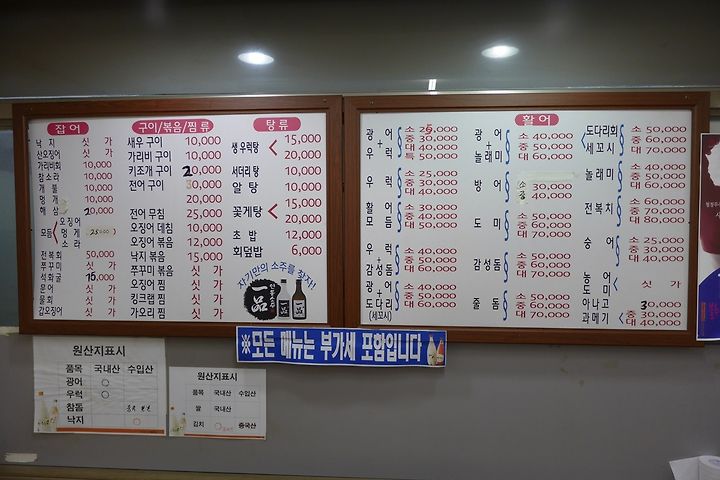 잡어
낙지 싯가
산오징어 싯가
가리비회 10,000
참소라 10,000
개불 10,000
멍게 10,000
해삼 10,000
모듬 오징어 멍게 소라 25000
전복회 50,000
쭈꾸미 싯가
석화굴 15,000
문어 싯가
물회 싯가
갑오징어 싯가
구이/볶음/찜류
새우 구이 10,000
가리비 구이 10,000
키조개 구이 20,000
전어 구이 30,000
20,000
전어 무침 25,000
오징어 데침 10,000
오징어 볶음 12,000
낙지 볶음 15,000
쭈꾸미 볶음 싯가
오징어 찜 싯가
킹크랩 찜 싯가
가오리 찜 싯가
탕류
생우럭탕 15,000
20,000
서더리 탕 10,000
알 탕 10,000
꽃게탕 15,000
20,000
초밥 12,000
회덮밥 6,000
자기만의 소주를 찾자!
활어
광어 + 우럭 소 25,000
중 30,000
대 40,000
특 50,000
우럭 소 25,000
중 30,000
대 40,000
활어 모듬 소 30,000
중 40,000
대 50,000
우럭 + 감성돔 소 40,000
중 50,000
대 60,000
광어 + 도다리 (세꼬시) 소 40,000
중 50,000
대 60,000
광어 + 놀래미 소 40,000
중 50,000
대 60,000
방어 소 30,000
중 40,000
도미 소 50,000
중 60,000
대 70,000
감성돔 소 50,000
중 60,000
대 70,000
줄돔 소 50,000
중 60,000
대 70,000
도다리회 세꼬시 소 50,000
중 60,000
대 70,000
놀래미 소 40,000
중 50,000
대 60,000
전복치 소 60,000
중 70,000
대 80,000
숭어 소 25,000
중 30,000
대 40,000
농어 도미 싯가
아나고 30,000
과메기 중 30,000
대 40,000
※모든 메뉴는 부가세 포함입니다
원산지표시
품목 국내산 수입산
광어 ○
우럭 ○
참돔
낙지 ○
원산지표시
품목 국내산 수입산
쌀 국내산
김치 중국산